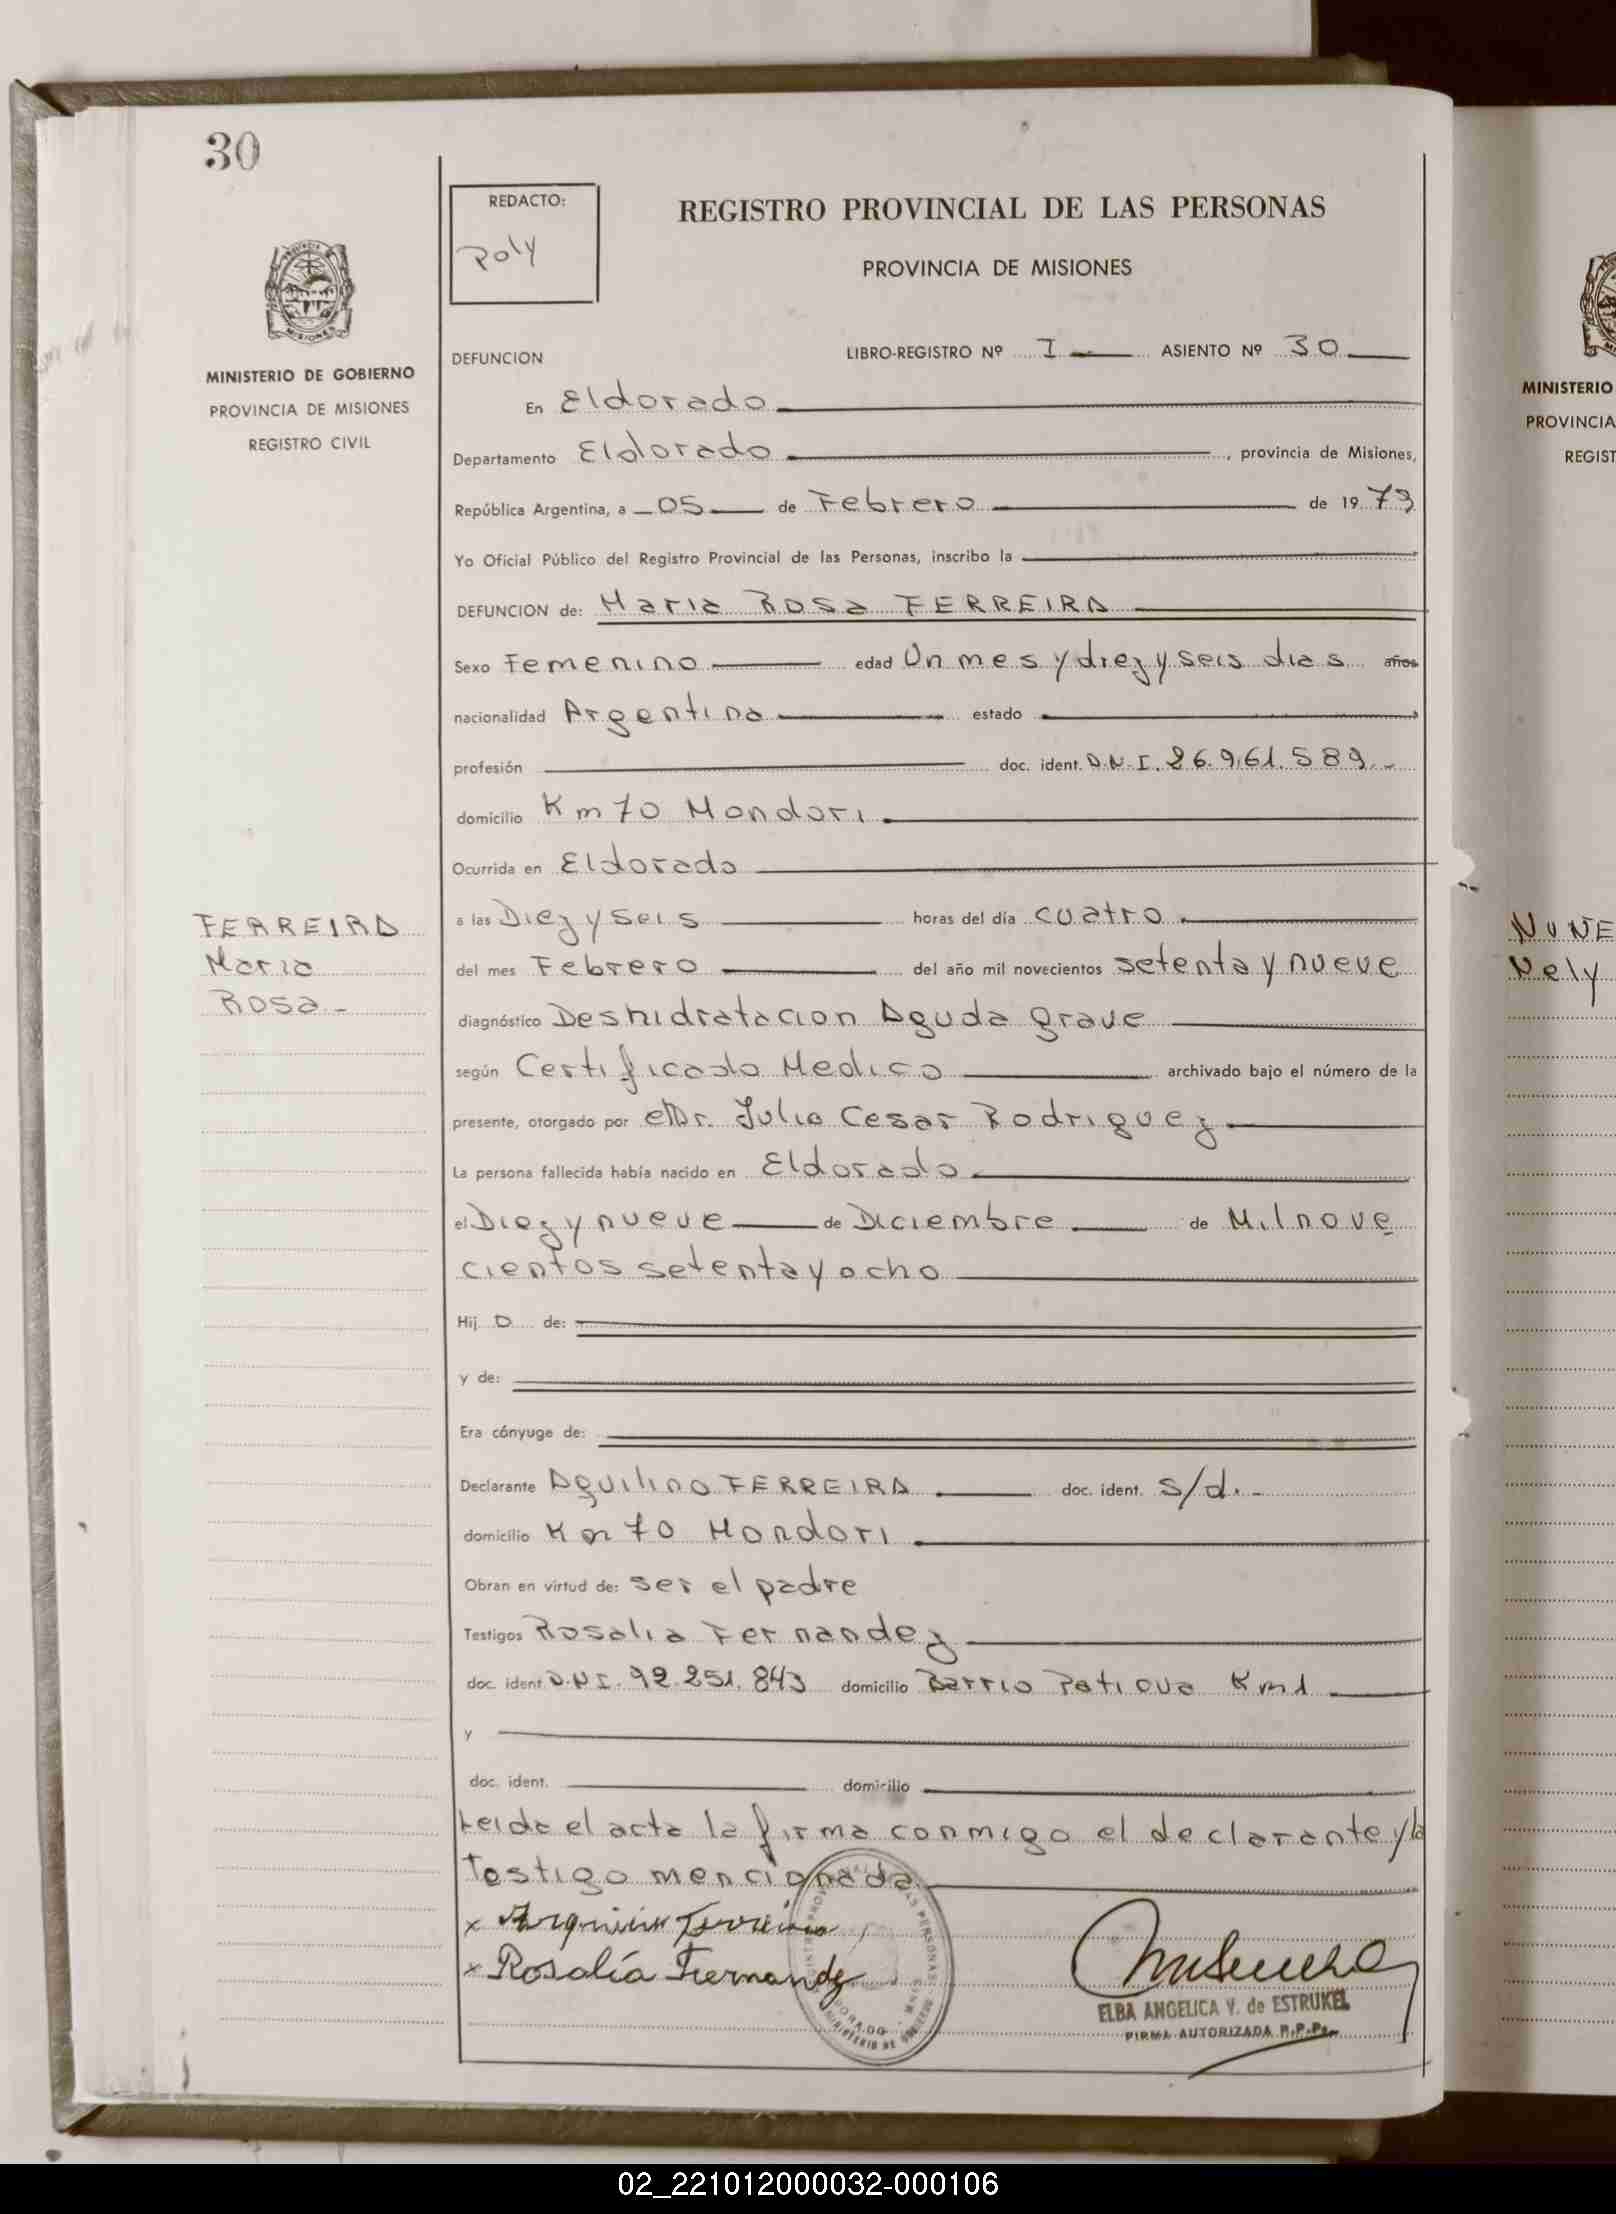 30
REDACTO:
Poly
REGISTRO PROVINCIAL DE LAS PERSONAS
PROVINCIA DE MISIONES
MINISTERIO DE GOBIERNO
PROVINCIA DE MISIONES
REGISTRO CIVIL
DEFUNCION LIBRO-REGISTRO Nº I ASIENTO Nº 30
En Eldorado
Departamento Eldorado, provincia de Misiones,
República Argentina, a 05 de Febrero de 1979
Yo Oficial Público del Registro Provincial de las Personas, inscribo la
DEFUNCION de: Maria Rosa FERREIRA
Sexo Femenino edad Un mes y diez y seis dias años
nacionalidad Argentina estado
profesión doc. ident. D.N.I. 26.961.589.-
domicilio Km 70 Mondori
Ocurrida en Eldorado
a las Diez y seis horas del día cuatro
del mes Febrero del año mil novecientos setenta y nueve
diagnóstico Deshidratacion Aguda grave
según Certificado Medico archivado bajo el número de la
presente, otorgado por el Dr. Julio Cesar Rodriguez
La persona fallecida había nacido en Eldorado
el Diez y nueve de Diciembre de Mil nove
cientos setenta y ocho
Hij a de:
y de:
Era cónyuge de:
Declarante Aquilino FERREIRA doc. ident. s/d.-
domicilio Km 70 Mondori
Obran en virtud de: ser el padre
Testigos Rosalia Fernandez
doc. ident D.N.I. 92.251.843 domicilio Barrio Km1
y
doc. ident. domicilio
Leida el acta la firma conmigo el declarante y la
Testigo mencionada
x Ferreira
x Rosalía Fernandez
ELBA ANGELICA V. de ESTRUKEL
FIRMA AUTORIZADA R.P.Ps.
FERREIRA
Maria
Rosa-
MINISTERIO
PROVINCIA
REGIST
NUNE
Nely
02_221012000032-000106